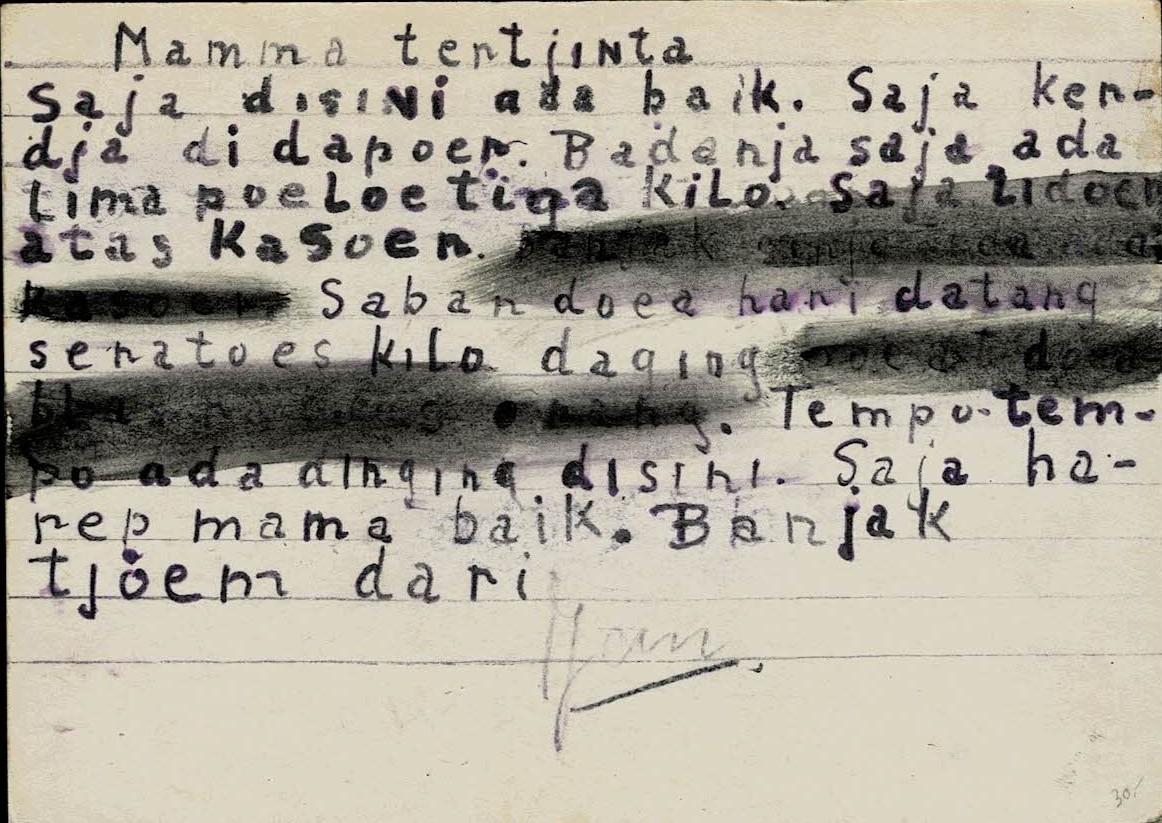 Mamma tertjinta
Saja disini ada baik. Saja ker-
dja di dapoer. Badanja saja ada
lima poeloe tiga kilo. Saja tidoer
atas Kasoer. Banjak
Kasoer Saban doea hari datang
seratoes kilo daging
orang. Tempo-tem-
po ada dinging disini. Saja ha-
rep mama baik. Banjak
tjoem dari
Jan
30.